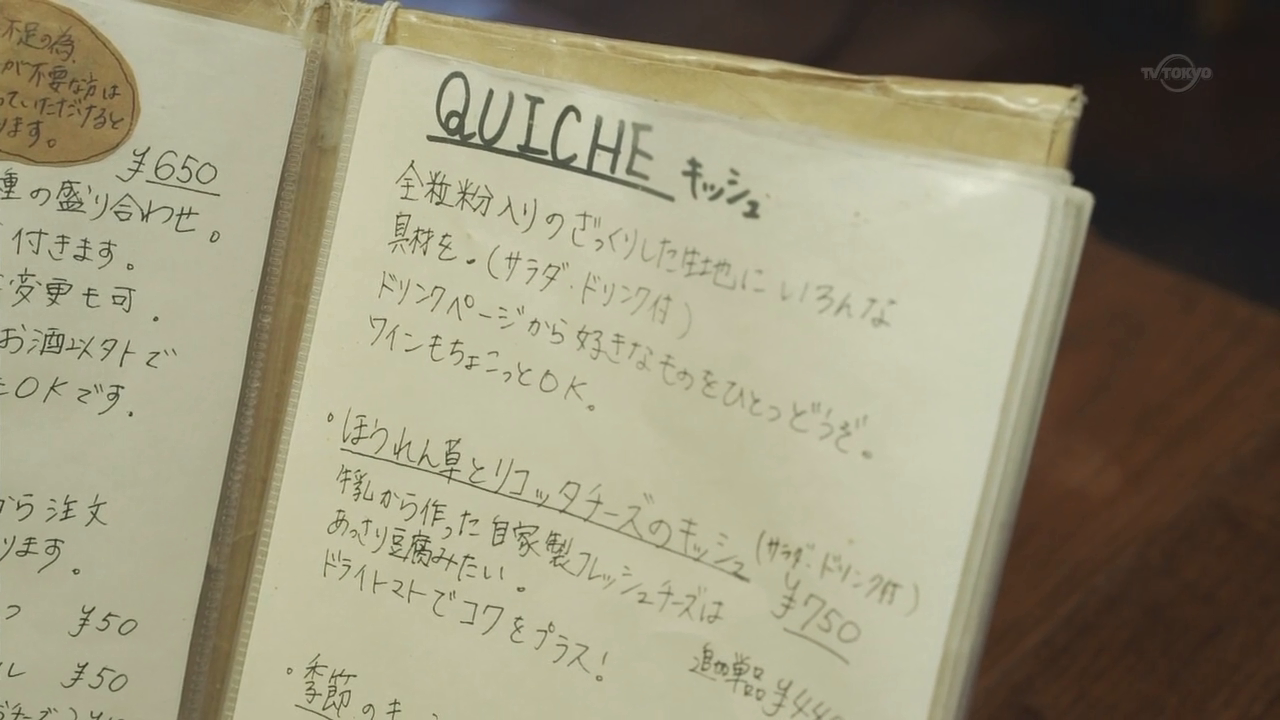 不足の為、
が不要な方は
っていただけると
ます。
¥650
種の盛り合わせ。
付きます。
変更も可.
お酒以外で
OKです.
から注文
ります。
¥50
レ ¥50
QUICHE キッシュ
全粒粉入りのざっくりした生地にいろんな
具材を。(サラダ・ドリンク付)
ドリンクページから好きなものをひとつどうぞ。
ワインもちょこっとOK。
・ほうれん草とリコッタチーズのキッシュ (サラダ・ドリンク付)
牛乳から作った自家製フレッシュチーズは ¥750
あっさり豆腐みたい。
ドライトマトでコクをプラス!
追加単品¥440
・季節のキ
TV TOKYO